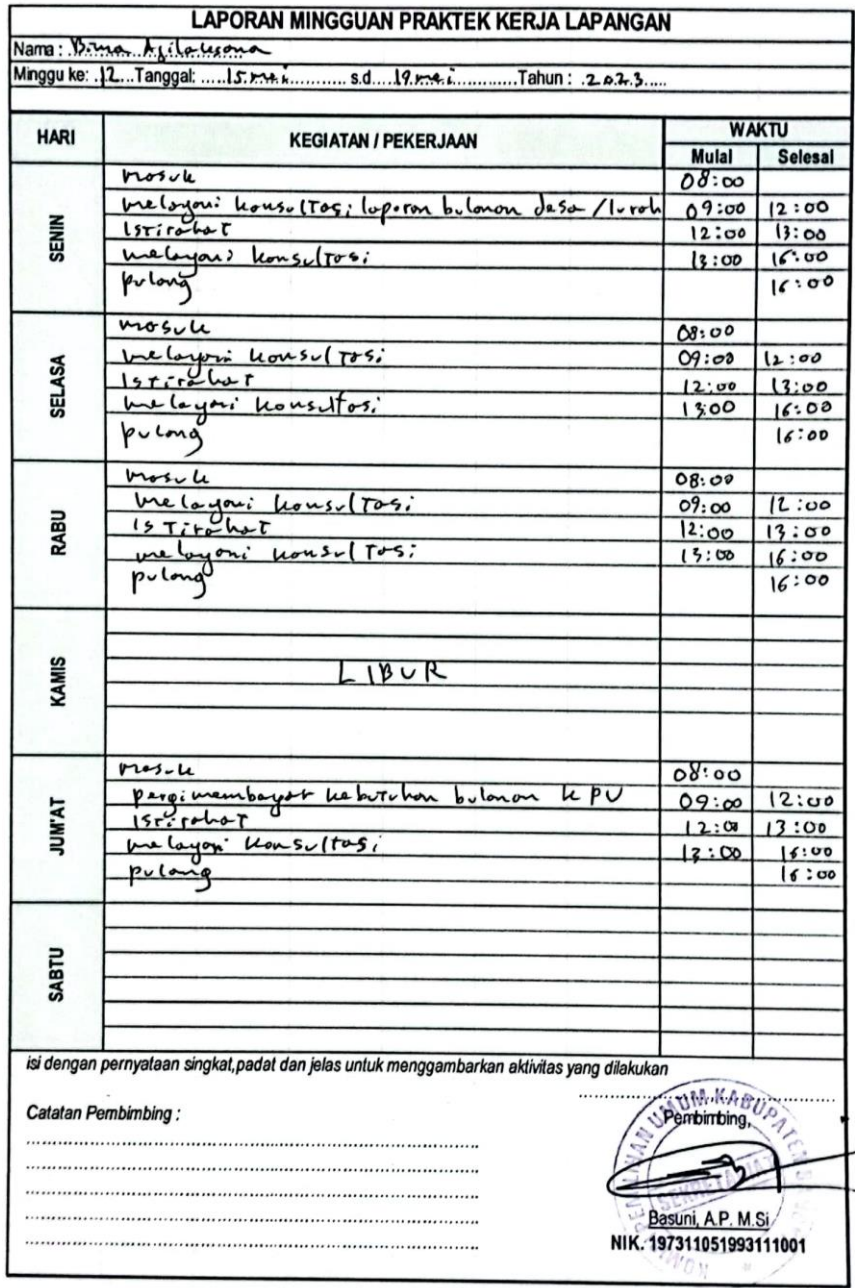 LAPORAN MINGGUAN PRAKTEK KERJA LAPANGAN
Nama : Bima Agilaksana
Minggu ke: 12 Tanggal: 15 mei s.d 19 mei Tahun : 2023
HARI KEGIATAN / PEKERJAAN WAKTU
Mulai Selesai
SENIN
masuk 08:00
melayani konsultasi laporan bulanan desa / lurah 09:00 12:00
Istirahat 12:00 13:00
melayani konsultasi 13:00 16:00
pulang 16:00
SELASA
masuk 08:00
melayani konsultasi 09:00 12:00
Istirahat 12:00 13:00
melayani konsultasi 13:00 16:00
pulang 16:00
RABU
masuk 08:00
melayani konsultasi 09:00 12:00
Istirahat 12:00 13:00
melayani konsultasi 13:00 16:00
pulang 16:00
KAMIS
LIBUR
JUM'AT
masuk 08:00
pergi membayar kebutuhan bulanan KPU 09:00 12:00
istirahat 12:00 13:00
melayani konsultasi 13:00 16:00
pulang 16:00
SABTU
isi dengan pernyataan singkat,padat dan jelas untuk menggambarkan aktivitas yang dilakukan
Catatan Pembimbing :
Pembimbing,
UMUM KABUPATEN
SEKRETARIAT
Basuni, A.P. M.Si
NIK. 197311051993111001